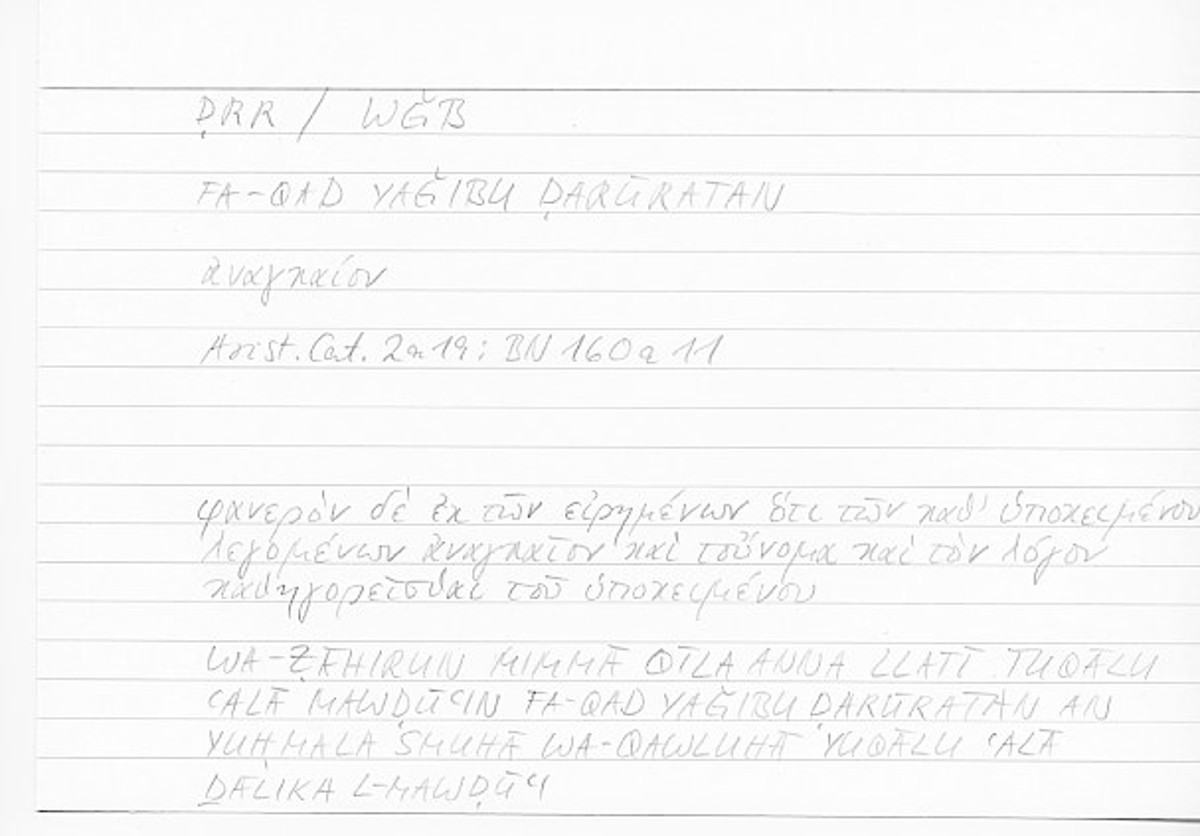 ḌRR / WǦB
FA-QAD YAǦIBU ḌARŪRATAN
ἀναγκαίον
Arist. Cat. 2a19; BN 160a11
φανερὸν δὲ ἐκ τῶν εἰρημένων ὅτι τῶν καθ' ὑποκειμένου
λεγομένων ἀναγκαῖον καὶ τοὔνομα καὶ τὸν λόγον
κατηγορεῖσθαι τοῦ ὑποκειμένου
WA-ẒĀHIRUN MIMMĀ QĪLA ANNA LLATĪ TUQĀLU
ʿALĀ MAWḌŪʿIN FA-QAD YAǦIBU ḌARŪRATAN AN
YUḤMALA SMUHĀ WA-QAWLUHĀ YUQĀLU ʿALĀ
ḎĀLIKA L-MAWḌŪʿI